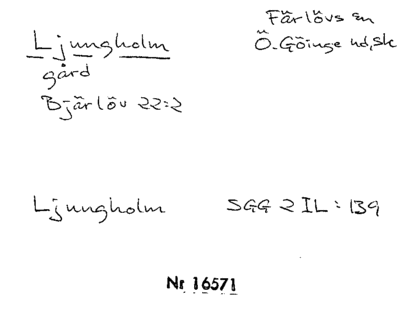 Ljungholm
gård
Bjärlöv 22:2
Färlövs sn
Ö. Göinge hd, Sk
Ljungholm SGG 2 IL: 139
Nr 16571